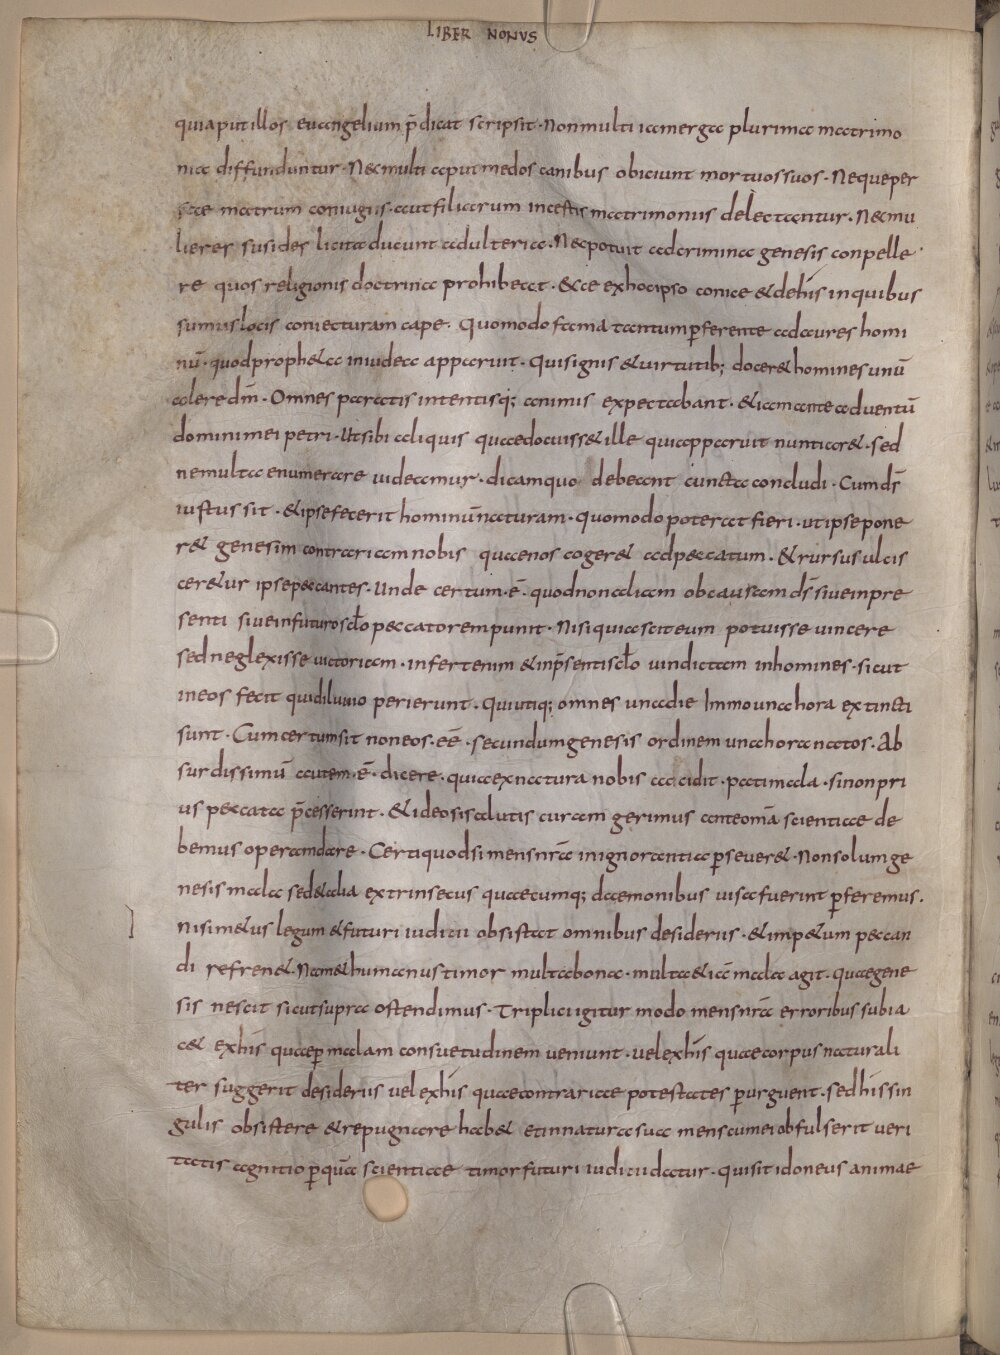 LIBER NONVS
quiaput illos euangelium p̄dicat scripsit · Non multi iam erga plurima matrimo
nia diffunduntur · Nec multi aput medos canibus obiciunt mortuos suos · Neque per
sae matrum coniugiis · aut filiarum incestis matrimoniis delectantur · Nec mu
lieres susides licita ducunt adulteria · Nec potuit ad crimina genesis conpelle
re quos religionis doctrina prohibeat · Ecce ex hoc ipso conice & de his in quibus
sumus locis coniecturam cape · Quomodo fama tantum ꝑferente ad aures homi
nū · quod proph&a in iudea apparuit · Qui signis & uirtutib; docer& homines unū
colere dm̄ · Omnes paratis intentisq; animis expectabant · & iam ante aduentū
domini mei petri · Ut sibi aliquis quae docuiss& ille qui apparuit nuntiar& · sed
ne multa enumerare uidecemur · dicam quo debeant cuncta concludi · Cum ds̄
iustus sit · & ipse fecerit hominūnaturam · quomodo poterat fieri · ut ipse pone
r& genesim contrariam nobis quae nos coger& ad peccatum · & rursus ulcis
cer&ur ipse peccantes · Unde certum · ē · quod non aliam ob causam ds̄ siue in pre
senti siue in futuro sclo peccatorem punit · Nisi quia scit eum potuisse uincere
sed neglexisse uictoriam · infert enim & in p̄senti sclo uindictam in homines · sicut
in eos fecit qui diluuio perierunt · Qui utiq; omnes una die Immo una hora extincti
sunt · Cum certum sit non eos · eē · secundum genesis ordinem una hora natos · Ab
surdissimū autem · ē · dicere · quia ex natura nobis accidit · pati mala · si non pri
us peccata p̄cesserint · & ideo si salutis curam gerimus ante omā scientiae de
bemus operam dare · Certi quod si mens nr̄a in ignorantia ꝑseuer& · Non solum ge
nesis mala sed & alia extrinsecus quaecumq; daemonibus uisa fuerint ꝑferemus ·
nisi m&us legum & futuri iudicii obsistat omnibus desideriis · & imp&um peccan
di refren& · Nam & humanus timor multa bona · multa & iā mala agit · quae gene
sis nescit sicut supra ostendimus · Triplici igitur modo mens nr̄a erroribus subia
c& ex his quae ꝑ malam consuetudinem ueniunt · uel ex his quae corpus naturali
ter suggerit desideriis uel ex his quae contrariae potestates ꝑurguent · sed his sin
gulis obsistere & repugnare hab& etin natura sua mens cum ei obfulserit ueri
tatis agnitio ꝑ quā scientiae timor futuri iudicii datur · qui sit idoneus animae